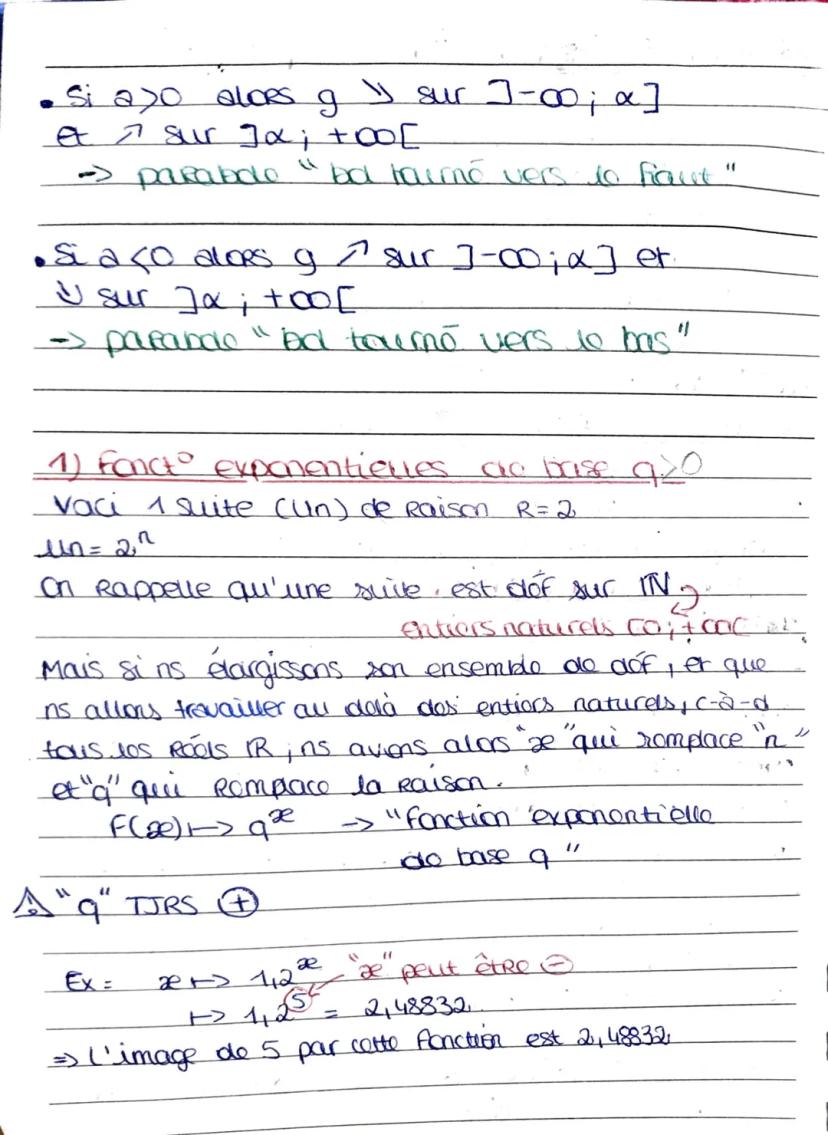 • Si a>0 alors g ↘ sur ]-∞; α]
et ↗ sur ]α; +∞[
-> parabole "bol tourné vers le haut"
• Si a<0 alors g ↗ sur ]-∞; α] et
↘ sur ]α; +∞[
-> parabole "bol tourné vers le bas"
1) Fonct° exponentielles de base q>0
Voici 1 suite (Un) de Raison R=2
Un = 2ⁿ
On Rappelle qu'une suite est déf sur ℕ
entiers naturels [0; +∞[
Mais si ns élargissons son ensemble de déf, et que
ns allons travailler au delà des entiers naturels, c-à-d
tous les Réels ℝ, ns avons alors "x" qui remplace "n"
et "q" qui Remplace la Raison.
F(x) ↦ qˣ -> "fonction exponentielle
de base q"
⚠ "q" TJRS ⊕
Ex = x ↦ 1,2ˣ "x" peut être ⊖
↦ 1,2⁵ = 2,48832
=> L'image de 5 par cette fonction est 2,48832